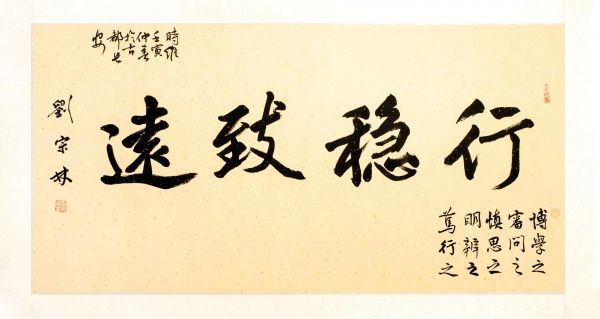 行稳致遠
博學之
審問之
慎思之
明辨之
篤行之
時維
壬寅
仲春
於古
都长
安
劉宗林